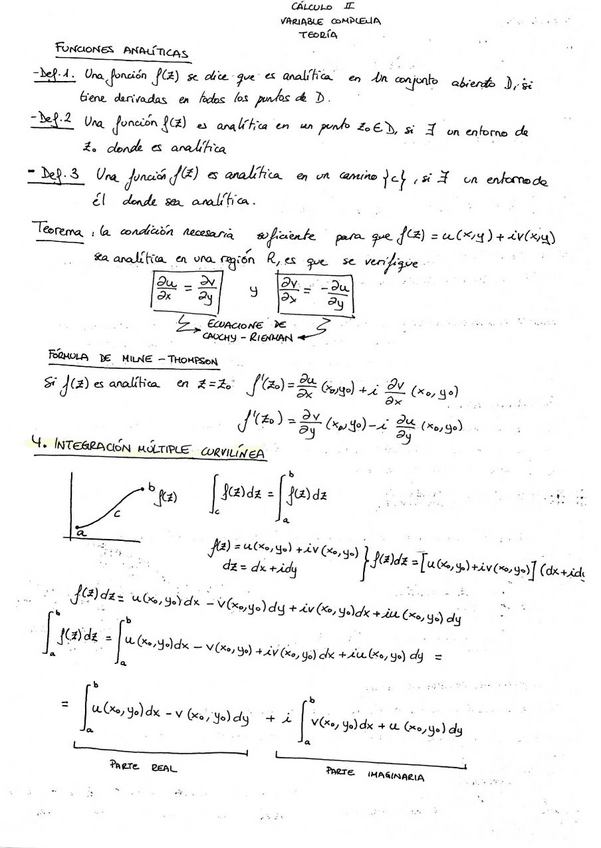 CÁLCULO II
VARIABLE COMPLEJA
TEORÍA
FUNCIONES ANALÍTICAS
- Def. 1. Una función f(z) se dice que es analítica en un conjunto abierto D, si
tiene derivadas en todos los puntos de D.
- Def. 2 Una función f(z) es analítica en un punto z₀ ∈ D, si ∃ un entorno de
z₀ donde es analítica
- Def. 3 Una función f(z) es analítica en un camino {c}, si ∃ un entorno de
él donde sea analítica.
Teorema: la condición necesaria suficiente para que f(z) = u(x,y) + iv(x,y)
sea analítica en una región R, es que se verifique
∂u/∂x = ∂v/∂y y ∂v/∂x = -∂u/∂y
ECUACIONE DE
CAUCHY - RIENMAN
FÓRMULA DE MILNE - THOMPSON
Si f(z) es analítica en z = z₀ f'(z₀) = ∂u/∂x (x₀,y₀) + i ∂v/∂x (x₀,y₀)
f'(z₀) = ∂v/∂y (x₀,y₀) - i ∂u/∂y (x₀,y₀)
4. INTEGRACIÓN MÚLTIPLE CURVILÍNEA
a c b f(z) ∫_c f(z)dz = ∫_a^b f(z)dz
f(z) = u(x₀,y₀) + iv(x₀,y₀)
dz = dx + idy } f(z)dz = [u(x₀,y₀) + iv(x₀,y₀)] (dx + id
f(z)dz = u(x₀,y₀)dx - v(x₀,y₀)dy + iv(x₀,y₀)dx + iu(x₀,y₀)dy
∫_a^b f(z)dz = ∫_a^b u(x₀,y₀)dx - v(x₀,y₀) + iv(x₀,y₀)dx + iu(x₀,y₀)dy =
= ∫_a^b u(x₀,y₀)dx - v(x₀,y₀)dy + i ∫_a^b v(x₀,y₀)dx + u(x₀,y₀)dy
PARTE REAL PARTE IMAGINARIA